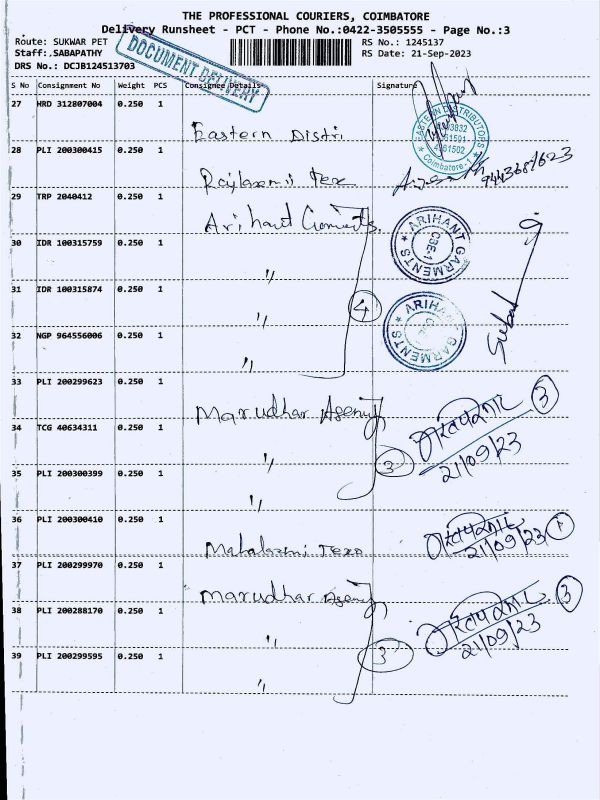 THE PROFESSIONAL COURIERS, COIMBATORE
Delivery Runsheet - PCT - Phone No.:0422-3505555 - Page No.:3
Route: SUKWAR PET
RS No.: 1245137
Staff:.SABAPATHY
RS Date: 21-Sep-2023
DRS No.: DCJB124513703
DOCUMENT DELIVERY
S No Consignment No Weight PCS Consignee Details Signature
27 HRD 312807004 0.250 1
Eastern Distri.
EASTERN DISTRIBUTORS
Coimbatore
28 PLI 200300415 0.250 1
Rajlaxmi Tex
29 TRP 2040412 0.250 1
Arihant Garments.
ARIHANT GARMENTS
CBE.1
30 IDR 100315759 0.250 1
"
31 IDR 100315874 0.250 1
" 4
ARIHANT GARMENTS
32 NGP 964556006 0.250 1
"
33 PLI 200299623 0.250 1
Marudhar Agency 3
34 TCG 40634311 0.250 1
" 3 21/09/23
35 PLI 200300399 0.250 1
"
36 PLI 200300410 0.250 1
Mahalaxmi Texo 21/09/23 1
37 PLI 200299970 0.250 1
Marudhar Agency 3
38 PLI 200288170 0.250 1
" 21/09/23
39 PLI 200299595 0.250 1
3
"